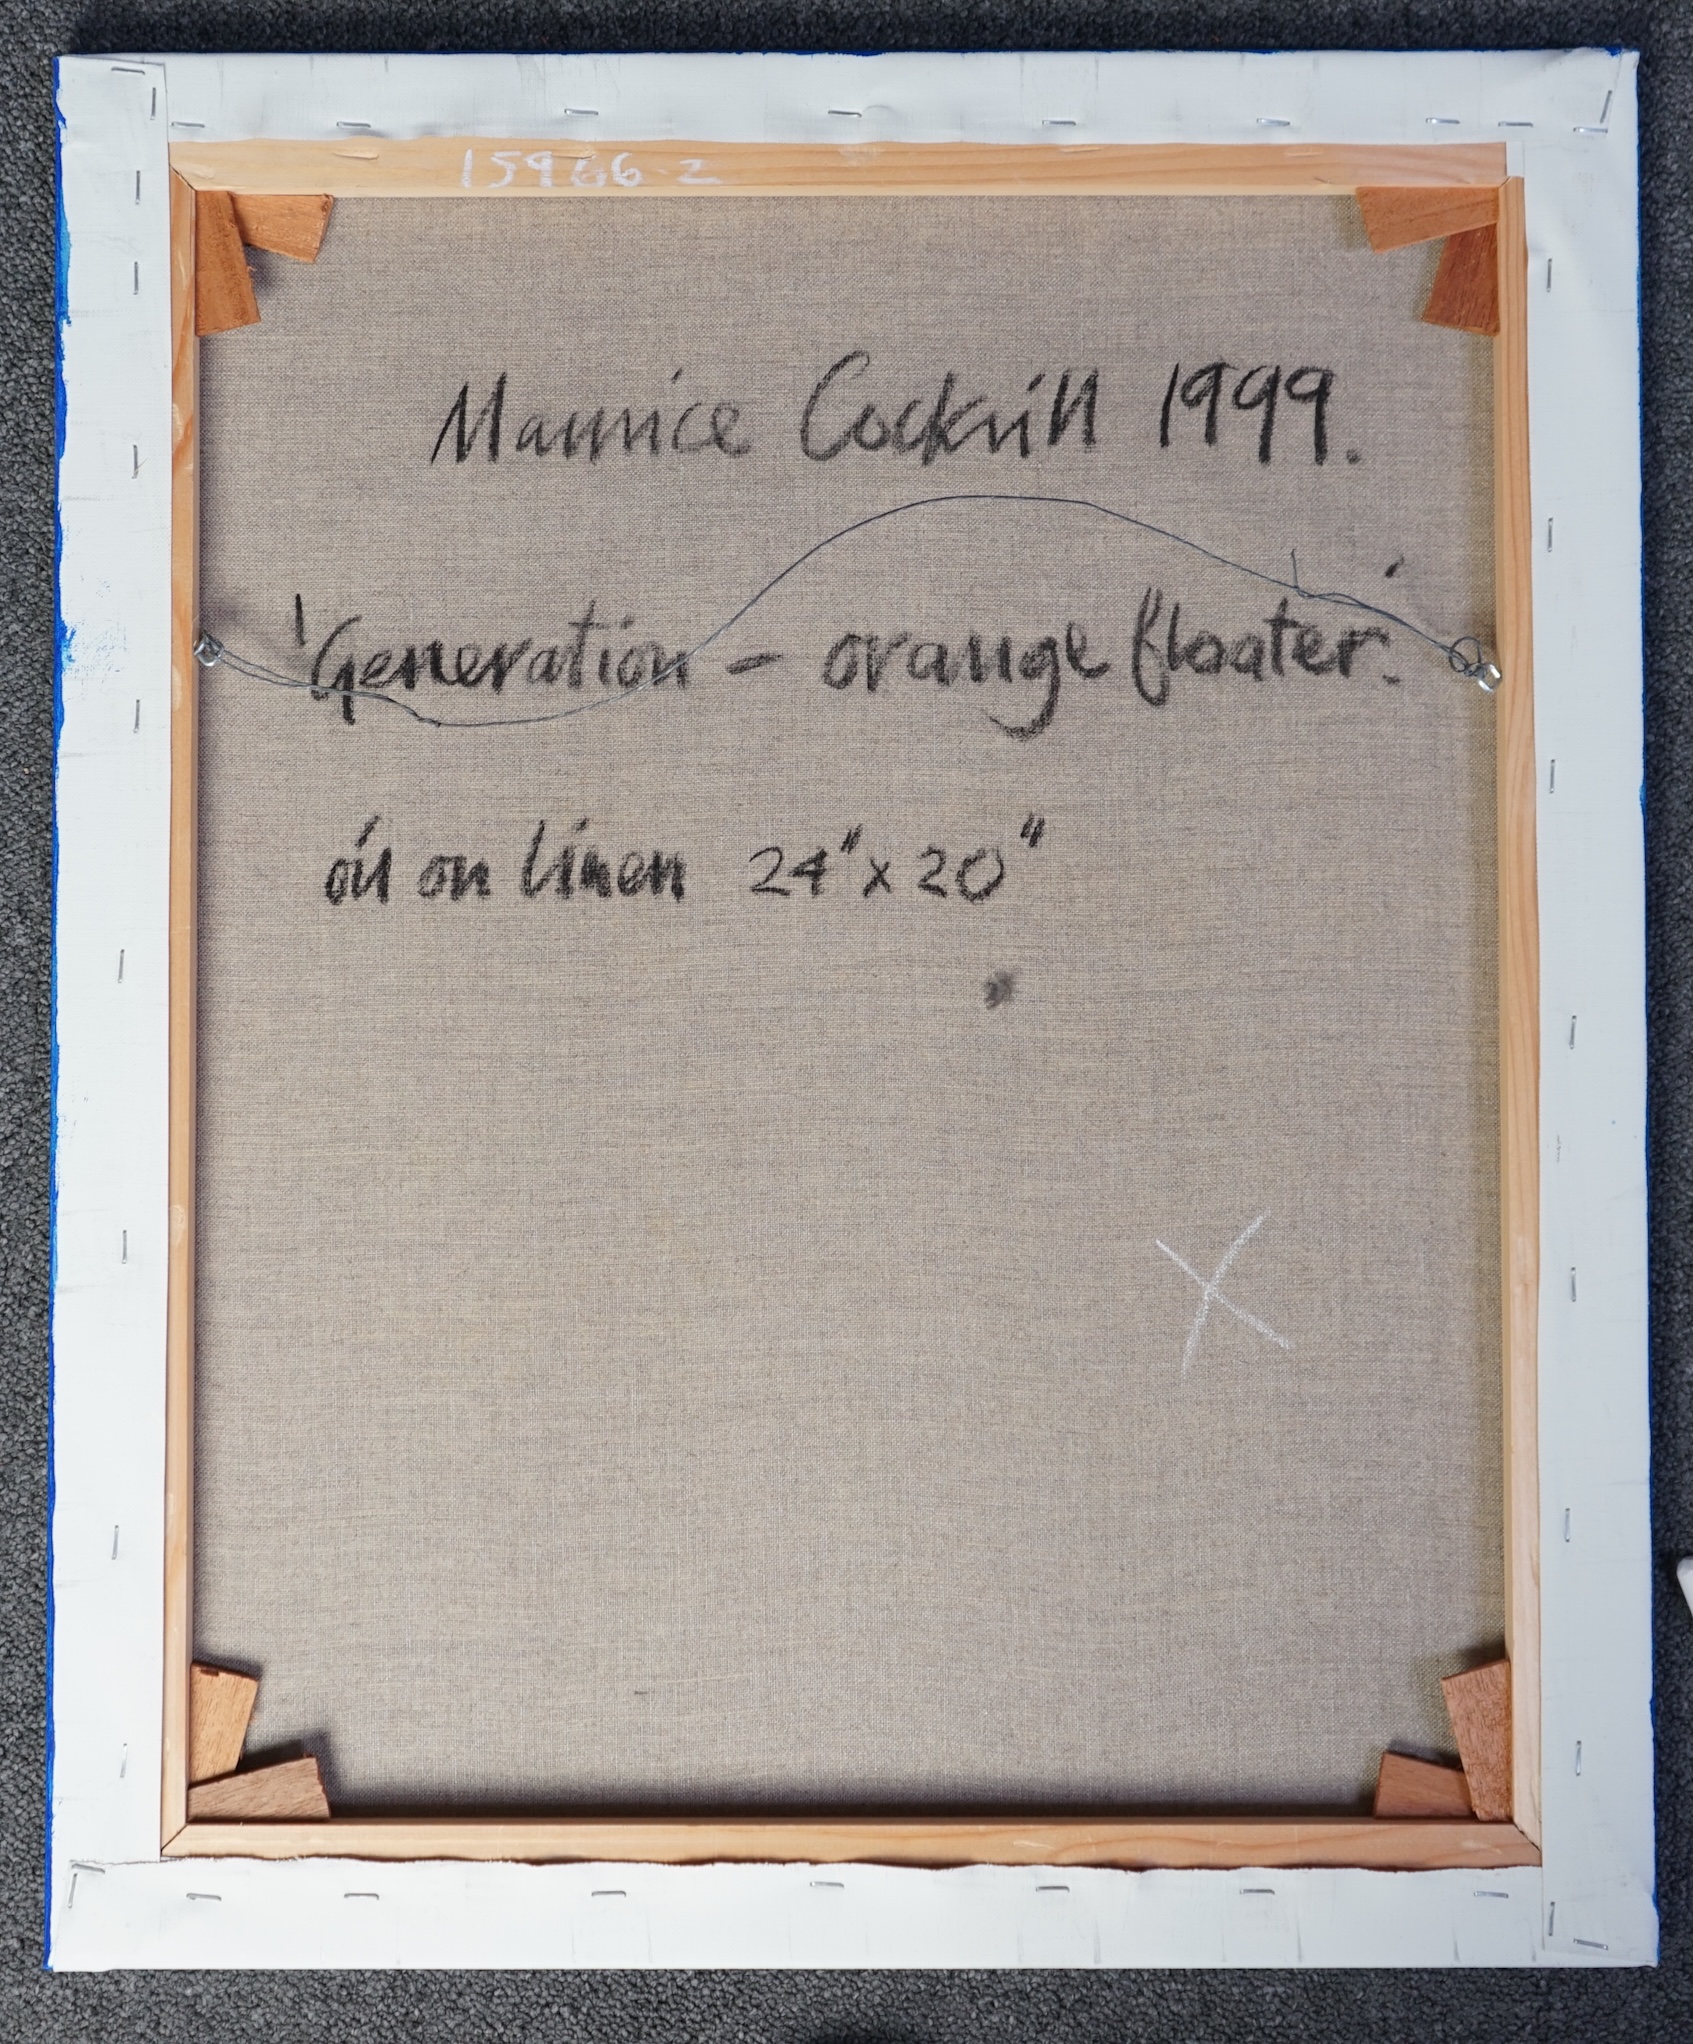 15966-2
Maurice Cockrill 1999.
'Generation – orange floater.'
oil on linen 24" x 20"
X